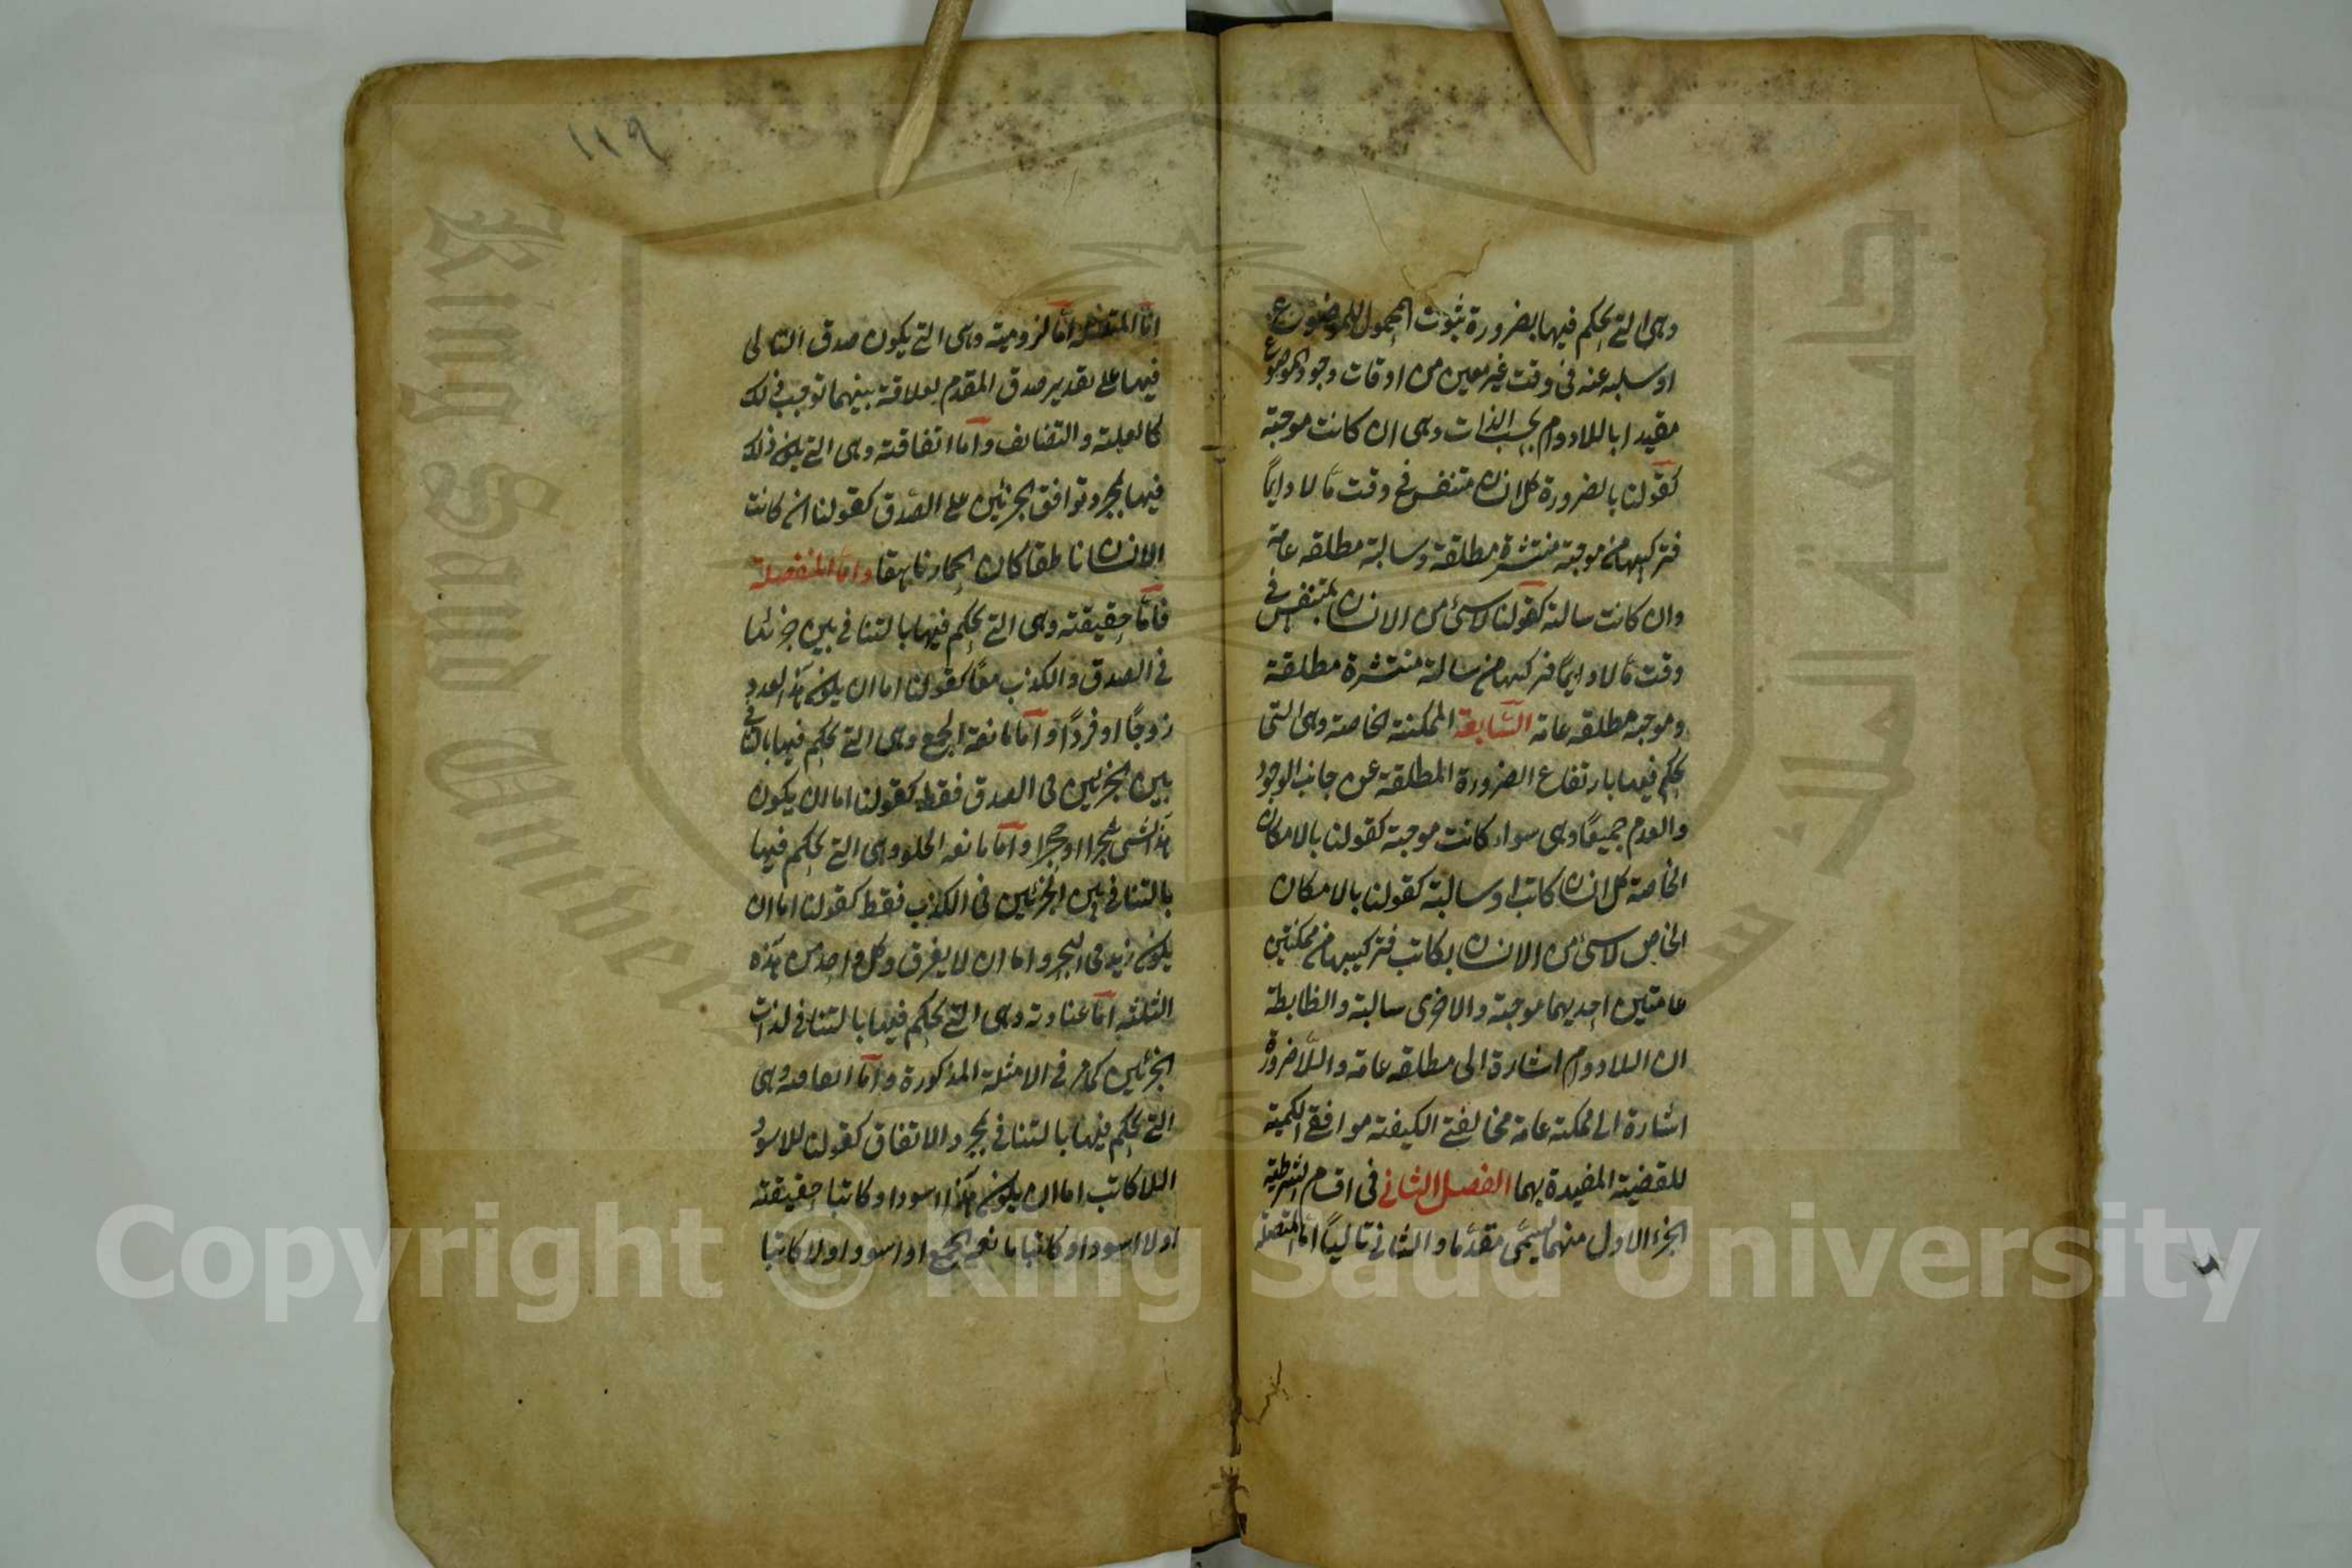 وهى التى يحكم فيها بضرورة ثبوت المحمول للموضوع
او سلبه عنه فى وقت غير معين من اوقات وجود الموضوع
مقيدا باللادوام بحسب الذات وهى ان كانت موجبة
كقولنا بالضرورة كل انسان متنفس فى وقت مّا لا دايماً
فتركيبها من موجبة منتشرة مطلقة وسالبة مطلقه عامة
وان كانت سالبة كقولنا لا شئ من الانسان بمتنفس فى
وقت مّا لا دايماً فتركيبها من سالبة منتشرة مطلقة
وموجبة مطلقه عامة السّابعة الممكنة الخاصة وهى التى
يحكم فيها بارتفاع الضرورة المطلقة عن جانب الوجود
والعدم جميعًا وهى سواء كانت موجبة كقولنا بالامكان
الخاصة كل انسان كاتب او سالبة كقولنا بالامكان
الخاص لا شئ من الانسان بكاتب فتركيبها من ممكنتين
عامتين احديهما موجبة والاخرى سالبة والظابطة
ان اللادوام اشارة الى مطلقه عامة واللّاضرورة
اشارة الى ممكنة عامة مخالفتى الكيفية موافقتى الكمية
للقضية المقيدة بهما الفصل الثانى فى اقسام الشرطية
الجزء الاول منهما يسمّى مقدّما والثانى تالياً امّا المتصلة
١١٩
امّا المتصلة امّا لزومية وهى التى يكون صدق التالى
فيها على تقدير صدق المقدم لعلاقة بينهما توجب ذلك
كالعلية والتضايف وامّا اتفاقية وهى التى يكون ذلك
فيها بمجرد توافق الجزئين على الصّدق كقولنا ان كانت
الانسان ناطقا كان الحمار ناهقا وامّا المنفصلة
فامّا حقيقية وهى التى يحكم فيها بالتنافى بين جزئيها
فى الصدق والكذب معًا كقولنا اما ان يكون هذا العدد
زوجًا او فردًا وامّا مانعة الجمع وهى التى يحكم فيها بالتنافى
بين الجزئين فى الصدق فقط كقولنا اما ان يكون
هذا الشئ شجرا او حجرا وامّا مانعه الخلو وهى التى يحكم فيها
بالتنافى بين الجزئين فى الكذب فقط كقولنا اما ان
يكون زيد فى البحر واما ان لا يغرق وكل واحد من هذه
الثلثة امّا عنادية وهى التى يحكم فيها بالتنافى لذات
الجزئين كما مر فى الامثلة المذكورة وامّا اتفاقية وهى
التى يحكم فيها بالتنافى بمجرد الاتفاق كقولنا للاسود
اللاكاتب اما ان يكون هذا اسود او كاتبا حقيقية
او لا اسود او كاتبا مانعة الجمع او اسود او لا كاتبا
King Saud Univer
جامعة الملك
Copyright © King Saud University